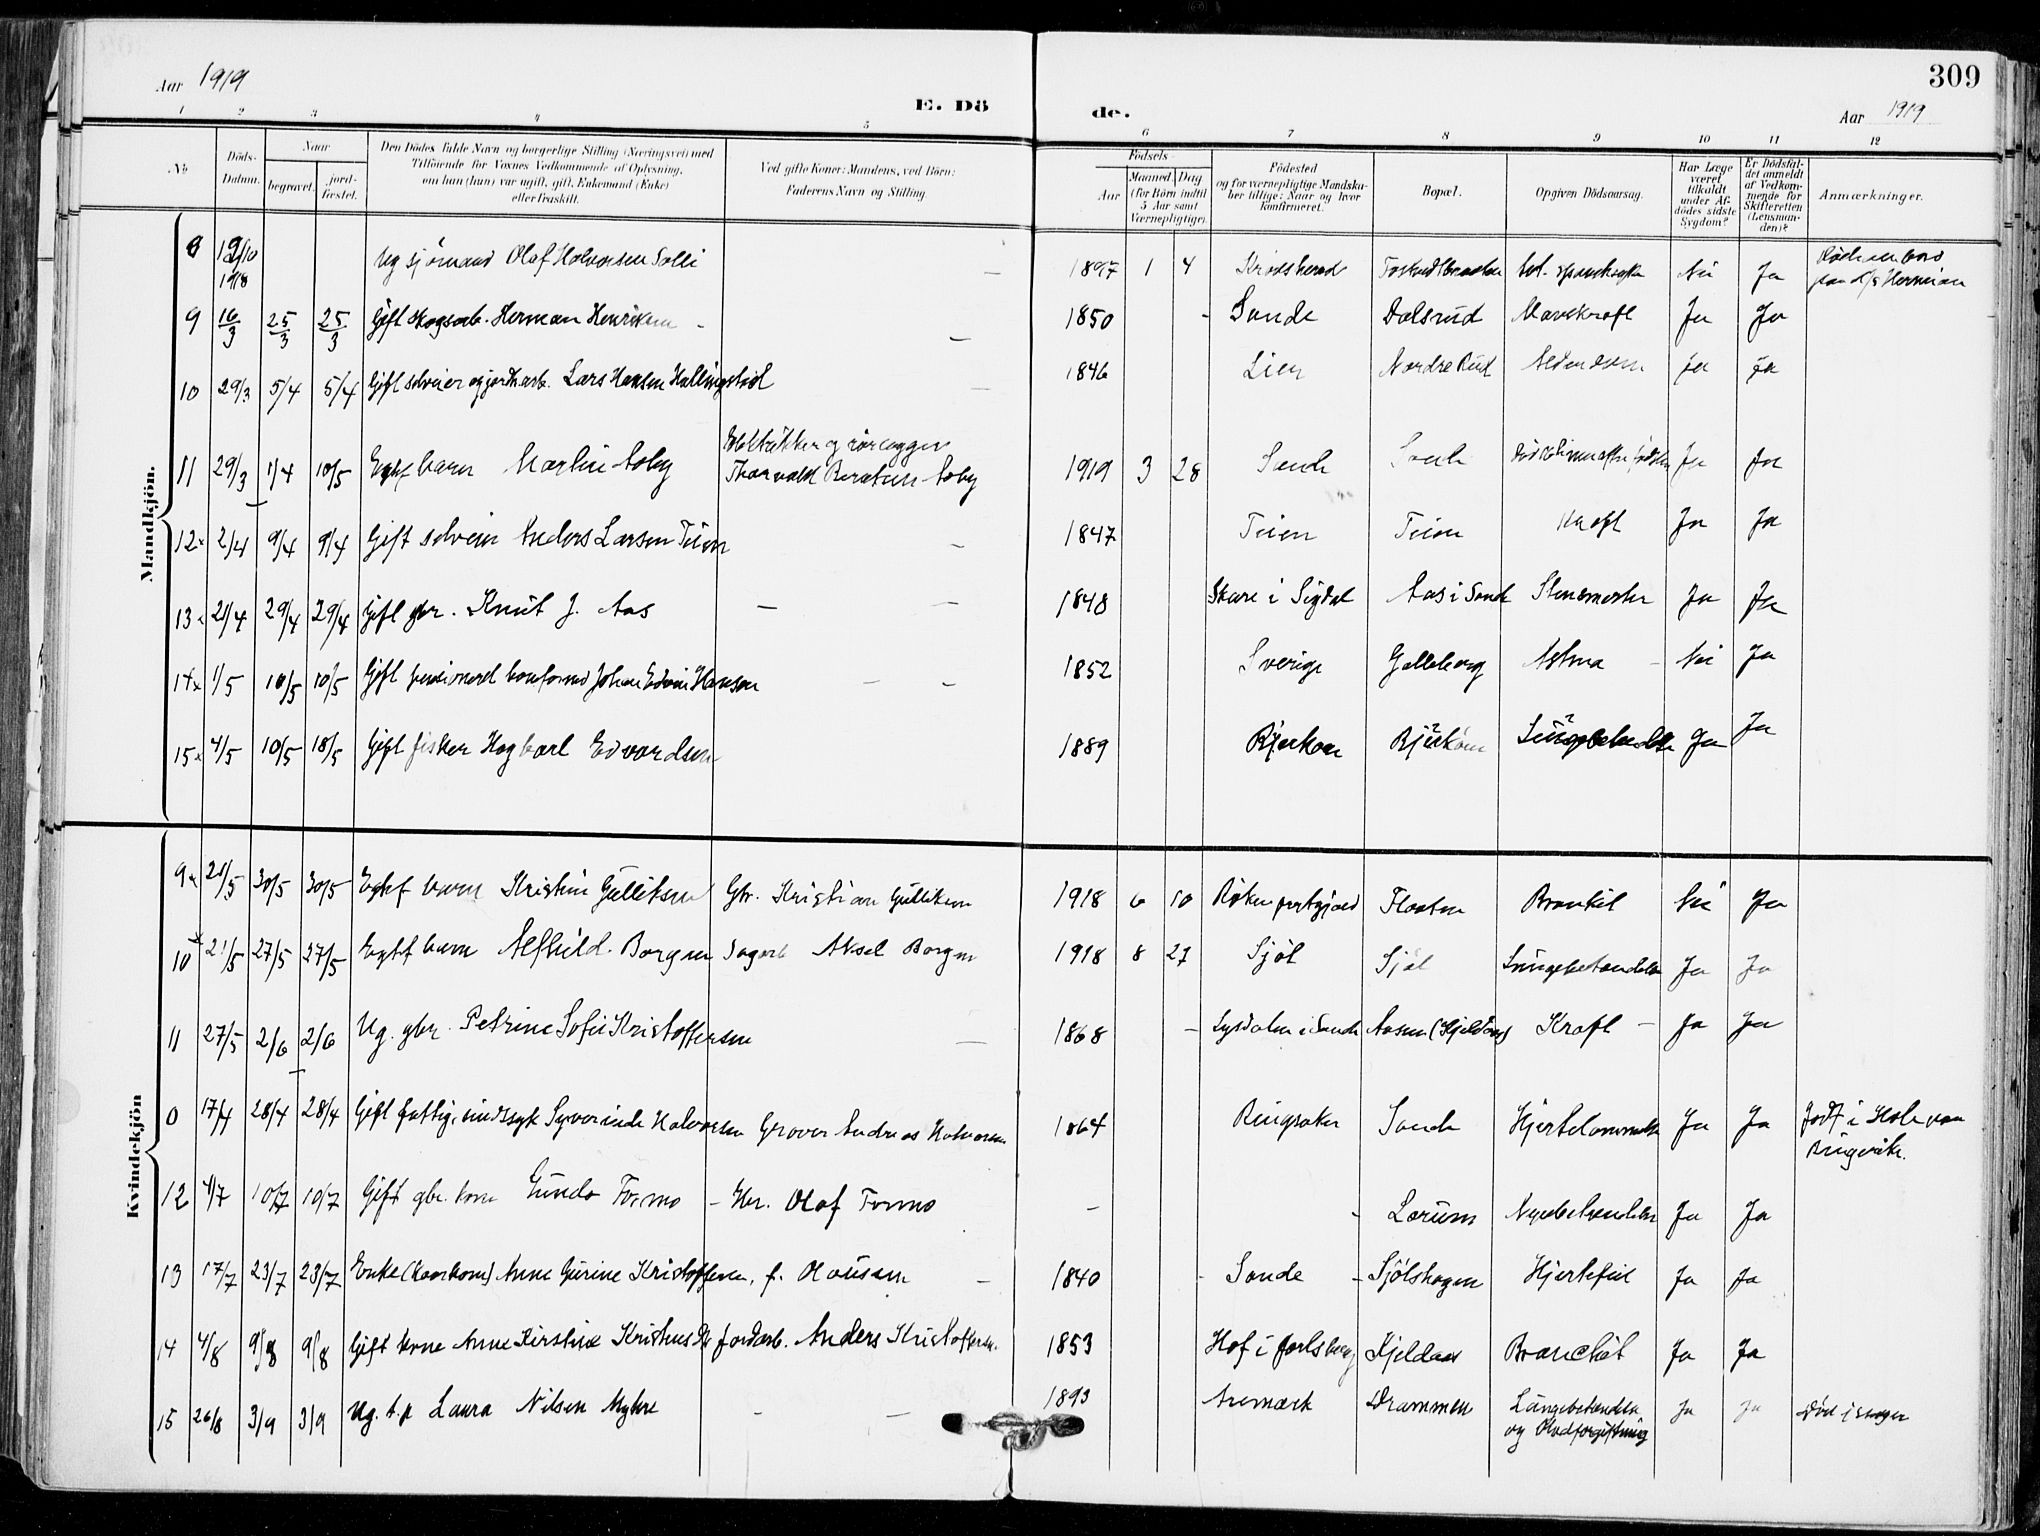 309
Aar 1919
E. Dö
de.
Aar 1919
1 2 3 4 5 6 7 8 9 10 11 12
No
Döds-
Datum.
Naar
begravet.
jord-
fæstet.
Den Dödes fulde Navn og borgerlige Stilling (Næringsvei) med
Tilföiende for Voxnes Vedkommende af Oplysning,
om han (hun) var ugift, gift, Enkemand (Enke)
eller fraskilt.
Ved gifte Koner: Mandens, ved Börn:
Faderens Navn og Stilling.
Födsels-
Aar
Maaned
Dag
(for Börn indtil
5 Aar samt
Værnepligtige).
Födested
og for værnepligtige Mandska-
ber tillige: Naar og hvor
konfirmeret.
Bopæl.
Opgiven Dödsaarsag.
Har Læge
været
tilkaldt
under Af-
dödes sidste
Sygdom?
Er Dödsfal-
det anmeldt
af Vedkom-
mende for
Skifteretten
(Lensman-
den)?
Anmærkninger.
Mandkjön.
8 1918 Ug sjömand Olaf Halvorsen Solli – 1897 1 4 Krødsherad Nei Ja
9 16/3 25/3 25/3 Gift skogsarb. Herman Henriksen – 1850 Sande Dalsrud Mavekræft Ja Ja
10 29/3 5/4 5/4 Gift selveier og jordarb. Lars Hansen Hallingstad – 1846 Lien Nordre Rud Alderdom Ja Ja
11 29/3 1/4 10/5 Egtef barn Martin Aaby Elektriker og rørlægger
Thorvald Berntsen Aaby 1919 3 28 Sande Sande Ja Ja
12 2/4 9/4 9/4 Gift selveier Anders Larsen Teien – 1847 Teien Teien Kræft Ja Ja
13 21/4 29/4 29/4 Gift gbr. Knut J. Aas – – 1848 Skare i Sigdal Aas i Sande Ja Ja
14 1/5 10/5 10/5 Gift pensioneret Johan Edvin Hansen – – 1852 Sverige Galleberg Astma – Nei Ja
15 4/5 10/5 18/5 Gift fisker Hagbart Edvardsen 1889 Bjerkøen Bjerkøen Lungebetændelse Ja Ja
Kvindekjön
9 30/5 30/5 Egtef barn Kristine Gulliksen Gbr. Kristian Gulliksen 1918 6 10 Røken prestgjæld Floaten Bronkit Nei Ja
10 21/5 27/5 27/5 Egtef barn Alfhild Borgen Sagarb Aksel Borgen 1918 8 27 Sjøl Sjøl Lungebetændelse Ja Ja
11 27/5 2/6 2/6 Ug. gbr. Petrine Sofie Kristoffersen – 1868 – Lysdalen i Sande Aasen (Kjeldaas) Kræft – Ja Ja
0 17/4 28/4 28/4 Gift fattig, sindssyk Syverine Halvorsen Graver Andreas Halvorsen 1864 Ringsaker Sande Hjertelammelse Ja Ja Jordf i Hole paa
Ringerike.
12 4/7 10/7 10/7 Gift gbr. kone Gunda Formo – Gbr. Olaf Formo – – Lørum Nyrebetændelse Ja Ja
13 17/7 23/7 23/7 Enke (kaarkone) Anne Gurine Kristoffersen, f. Olausen – 1840 – Sande – Sjølshagen Hjertefeil Ja Ja
14 4/8 9/8 9/8 Gift kone Anne Kirstine Kristiansdtr Jordarb. Anders Kristoffersen. 1853 Hof i Jarlsberg Kjeldaas Bronchit Ja Ja
15 26/8 3/9 3/9 Ug. t.p Laura Nilsen Myhre – – 1893 Aremark Drammen Lungebetændelse
og Blodforgiftning Ja Ja Död i